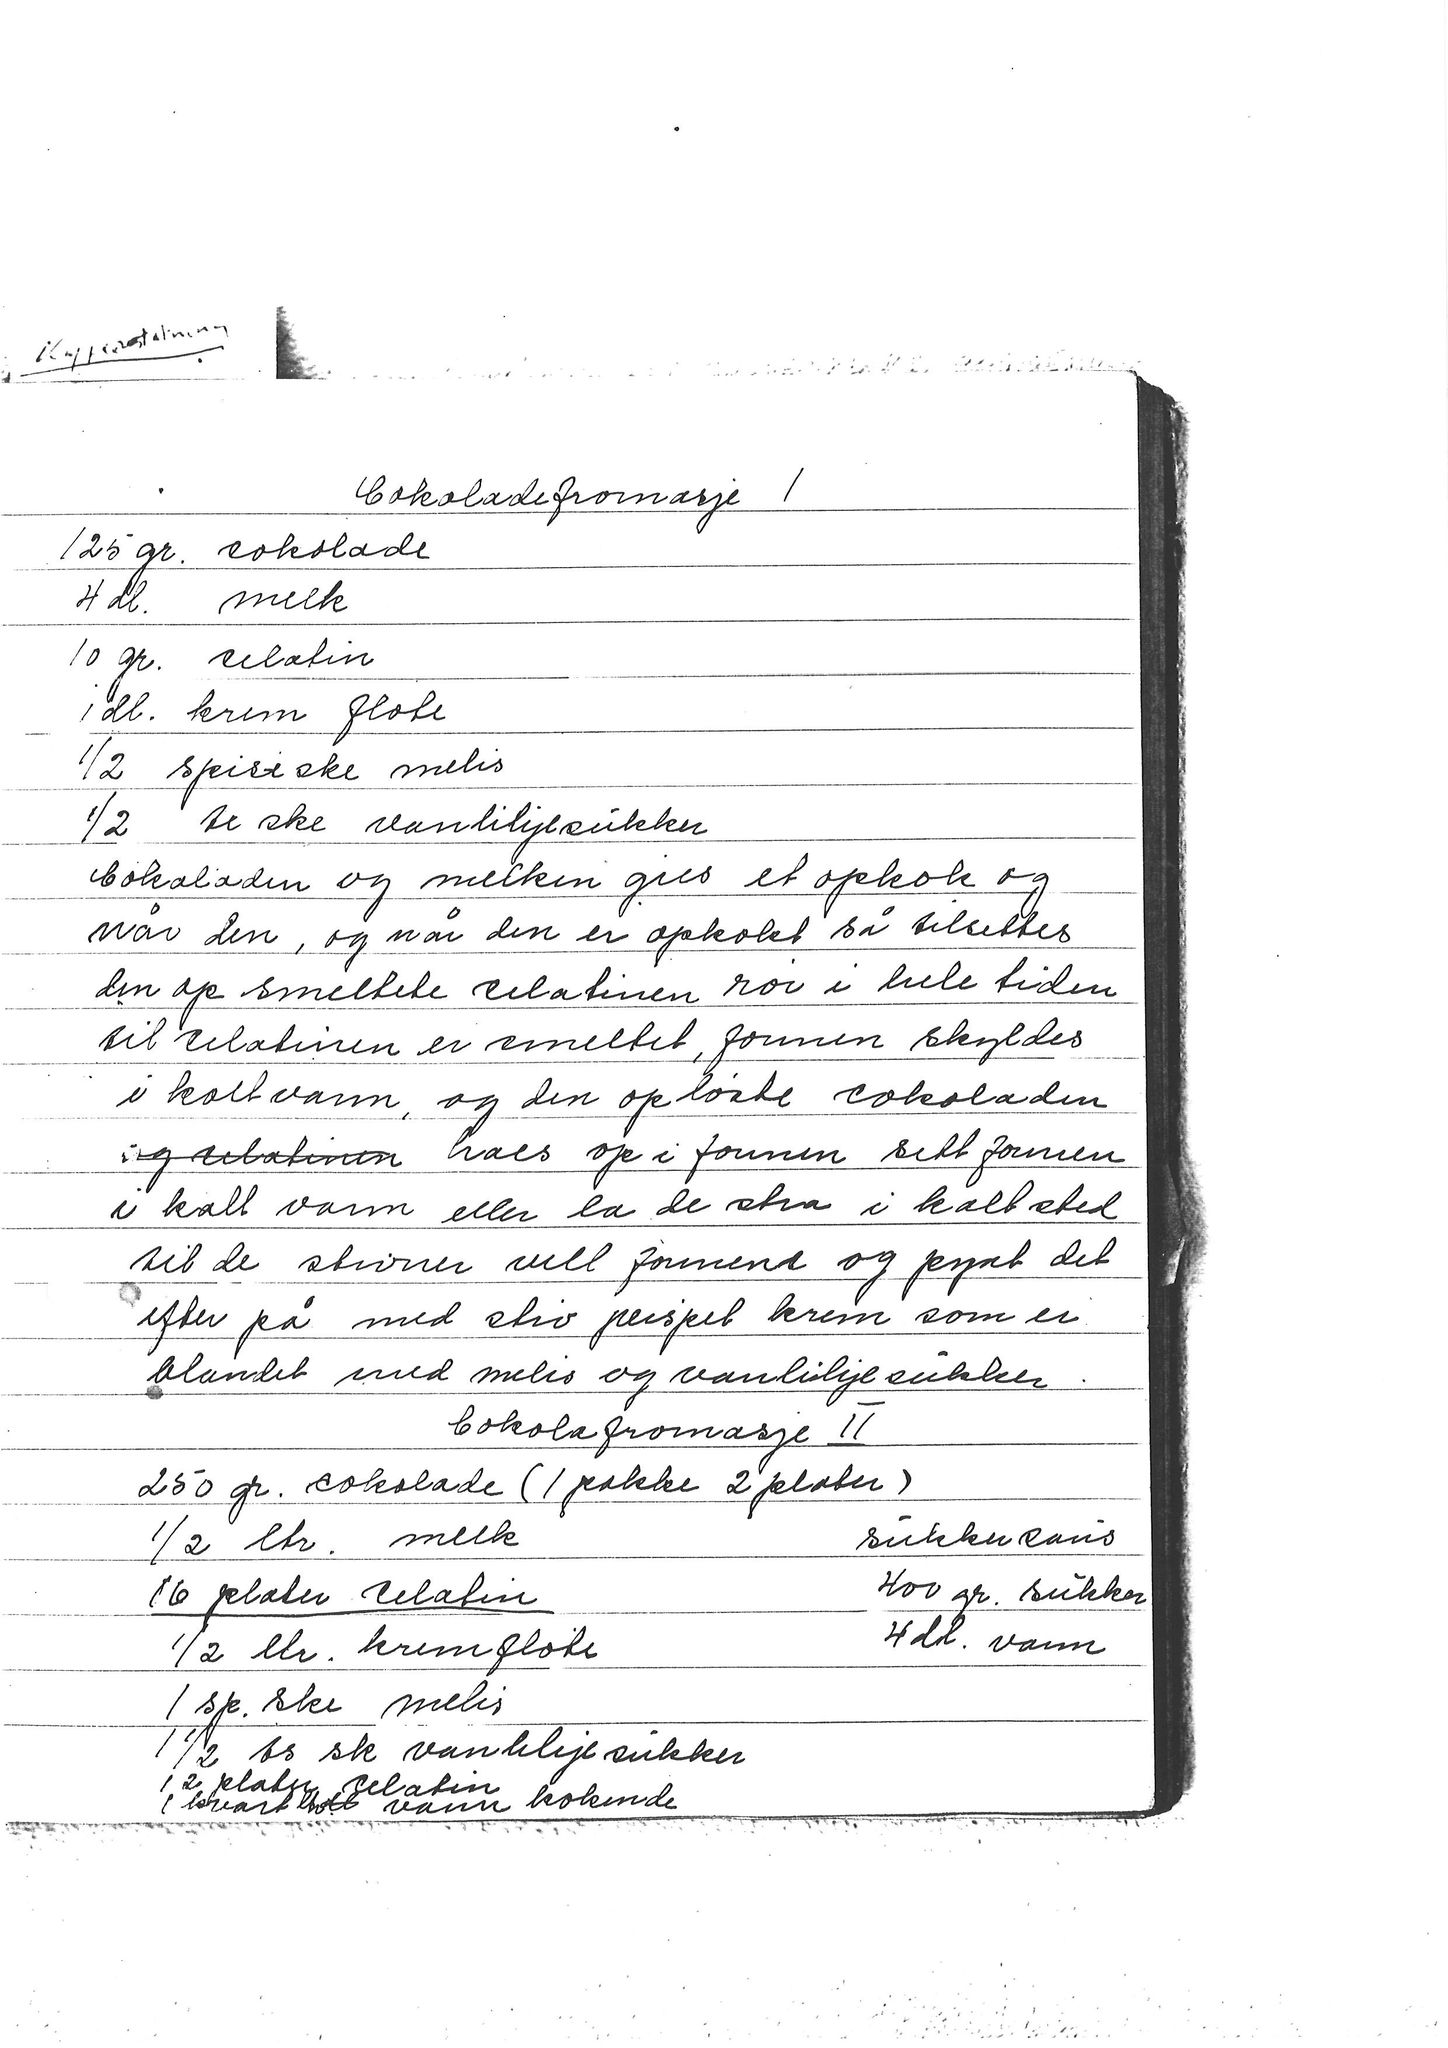 Cokoladefromasje 1
125 gr. cokolade
4 dl. melk
10 gr. celatin
1 dl. krem fløte
1/2 spiseske melis
1/2 te ske vanliljesukker
Cokoladen og melken gies et opkok og
når den, og når den er opkokt så tilsettes
den op smeltete celatinen rör i hele tiden
til celatinen er smeltet, formen skyldes
i kalt vann, og den opløste cokoladen
og celatinen haes op i formen sett formen
i kalt vann eller la de stra i kalt sted
til de stivner vell formene og pynt det
efter på med stiv peispet krem som er
blandet med melis og vanliljesukker.
Cokolafromasje II
250 gr. cokolade (1 pakke 2 plater)
1/2 ltr. melk sukker saus
16 plater celatin 400 gr. sukker
1/2 ltr. kremfløte 4 dl. vann
1 sp. ske melis
1 1/2 ts sk vanliljesukker
12 plater celatin
1 kvart vann kokende